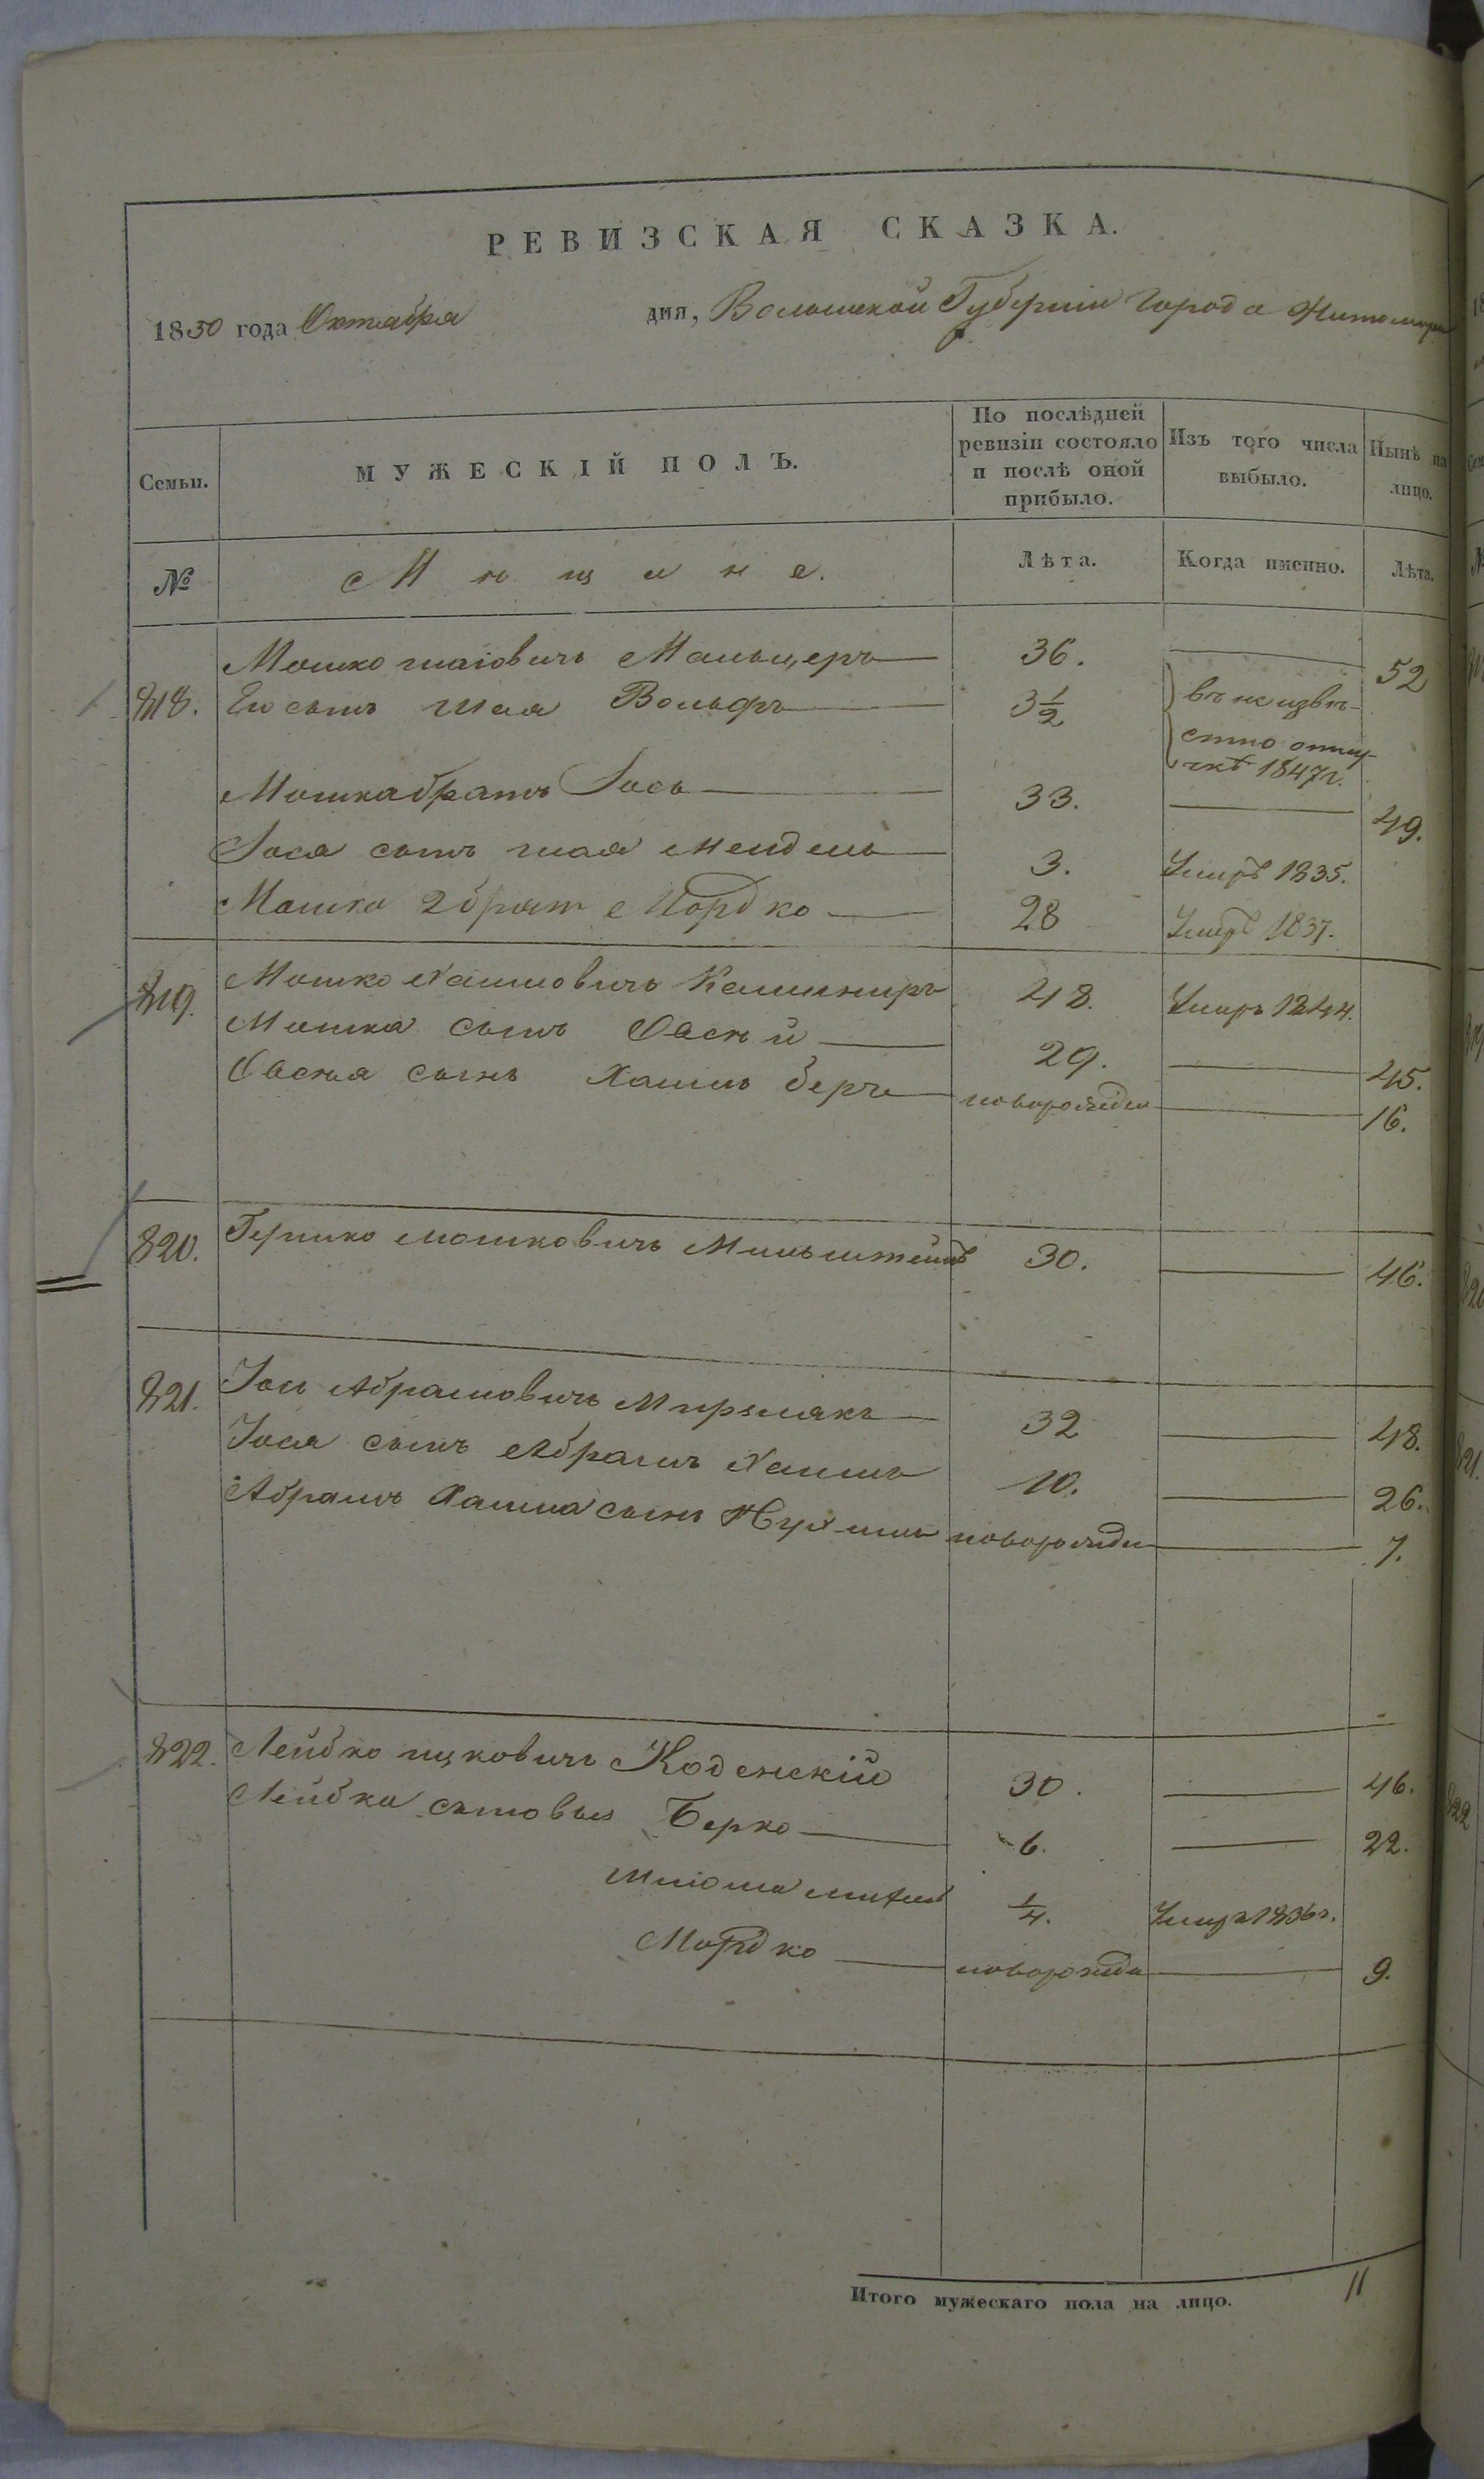 РЕВИЗСКАЯ СКАЗКА.
1850 года Октября дня, Волынской Губернiи Города Житомира
Семьи. МУЖЕСКIЙ ПОЛЪ. По послѣдней ревизiи состояло и послѣ оной прибыло. Изъ того числа выбыло. Нынѣ на лицо.
№ Мѣщане. Лѣта. Когда именно. Лѣта.
Мошко шаiовичъ Мальцеръ 36. 52
818. Его сынъ шая Вольфъ 3½ въ неизвѣ-
стно отлу-
чкѣ 1847г.
Мошка братъ Iось 33. 49.
Iося сынъ шая мендель 3. Умеръ 1835.
Мошка 2 братъ Мордко 28 Умеръ 1837.
819. Мошко Хаимовичъ Камениръ 48. Умеръ 1844.
Мошка сынъ Овсѣй 29. 45.
Овсѣя сынъ Хаимъ берко новорожден 16.
820. Гершко мошковичъ Мильштейнъ 30. 46.
821. Iось Абрамовичъ 32 48.
Iося сынъ Абрамъ Хаимъ 10. 26.
Абрамъ Хаима сынъ Нухимъ новорожден 7.
822. Лейбко ицковичъ Коденскiй 30. 46.
Лейбка сыновья Берко 6. 22.
¼. Умеръ 1836г.
Мордко новорожден 9.
Итого мужескаго пола на лицо. 11